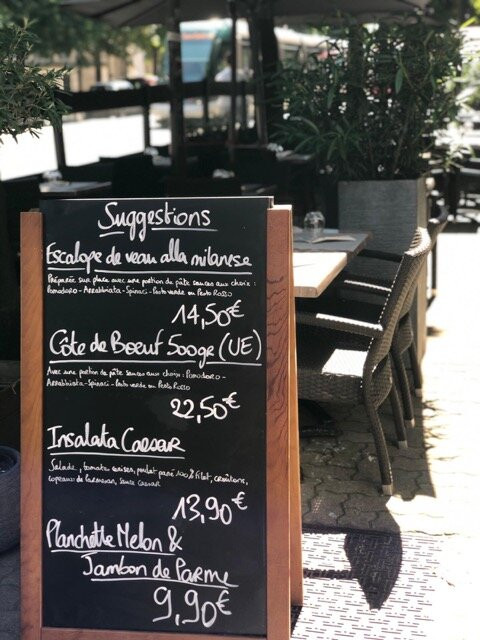 Suggestions
Escalope de veau alla milanese
Préparée sur place avec une portion de pâte sauces aux choix :
Pomodoro - Arrabbiata - Spinaci - Pesto verde ou Pesto Rosso
14,50€
Côte de Boeuf 500gr (UE)
Avec une portion de pâte sauces aux choix : Pomodoro -
Arrabbiata - Spinaci - Pesto verde ou Pesto Rosso
22,50€
Insalata Caesar
Salade, tomate cerises, poulet pané 100% filet, croûtons,
copeaux de Parmesan, sauce Caesar
13,90€
Planchette Melon &
Jambon de Parme
9,90€